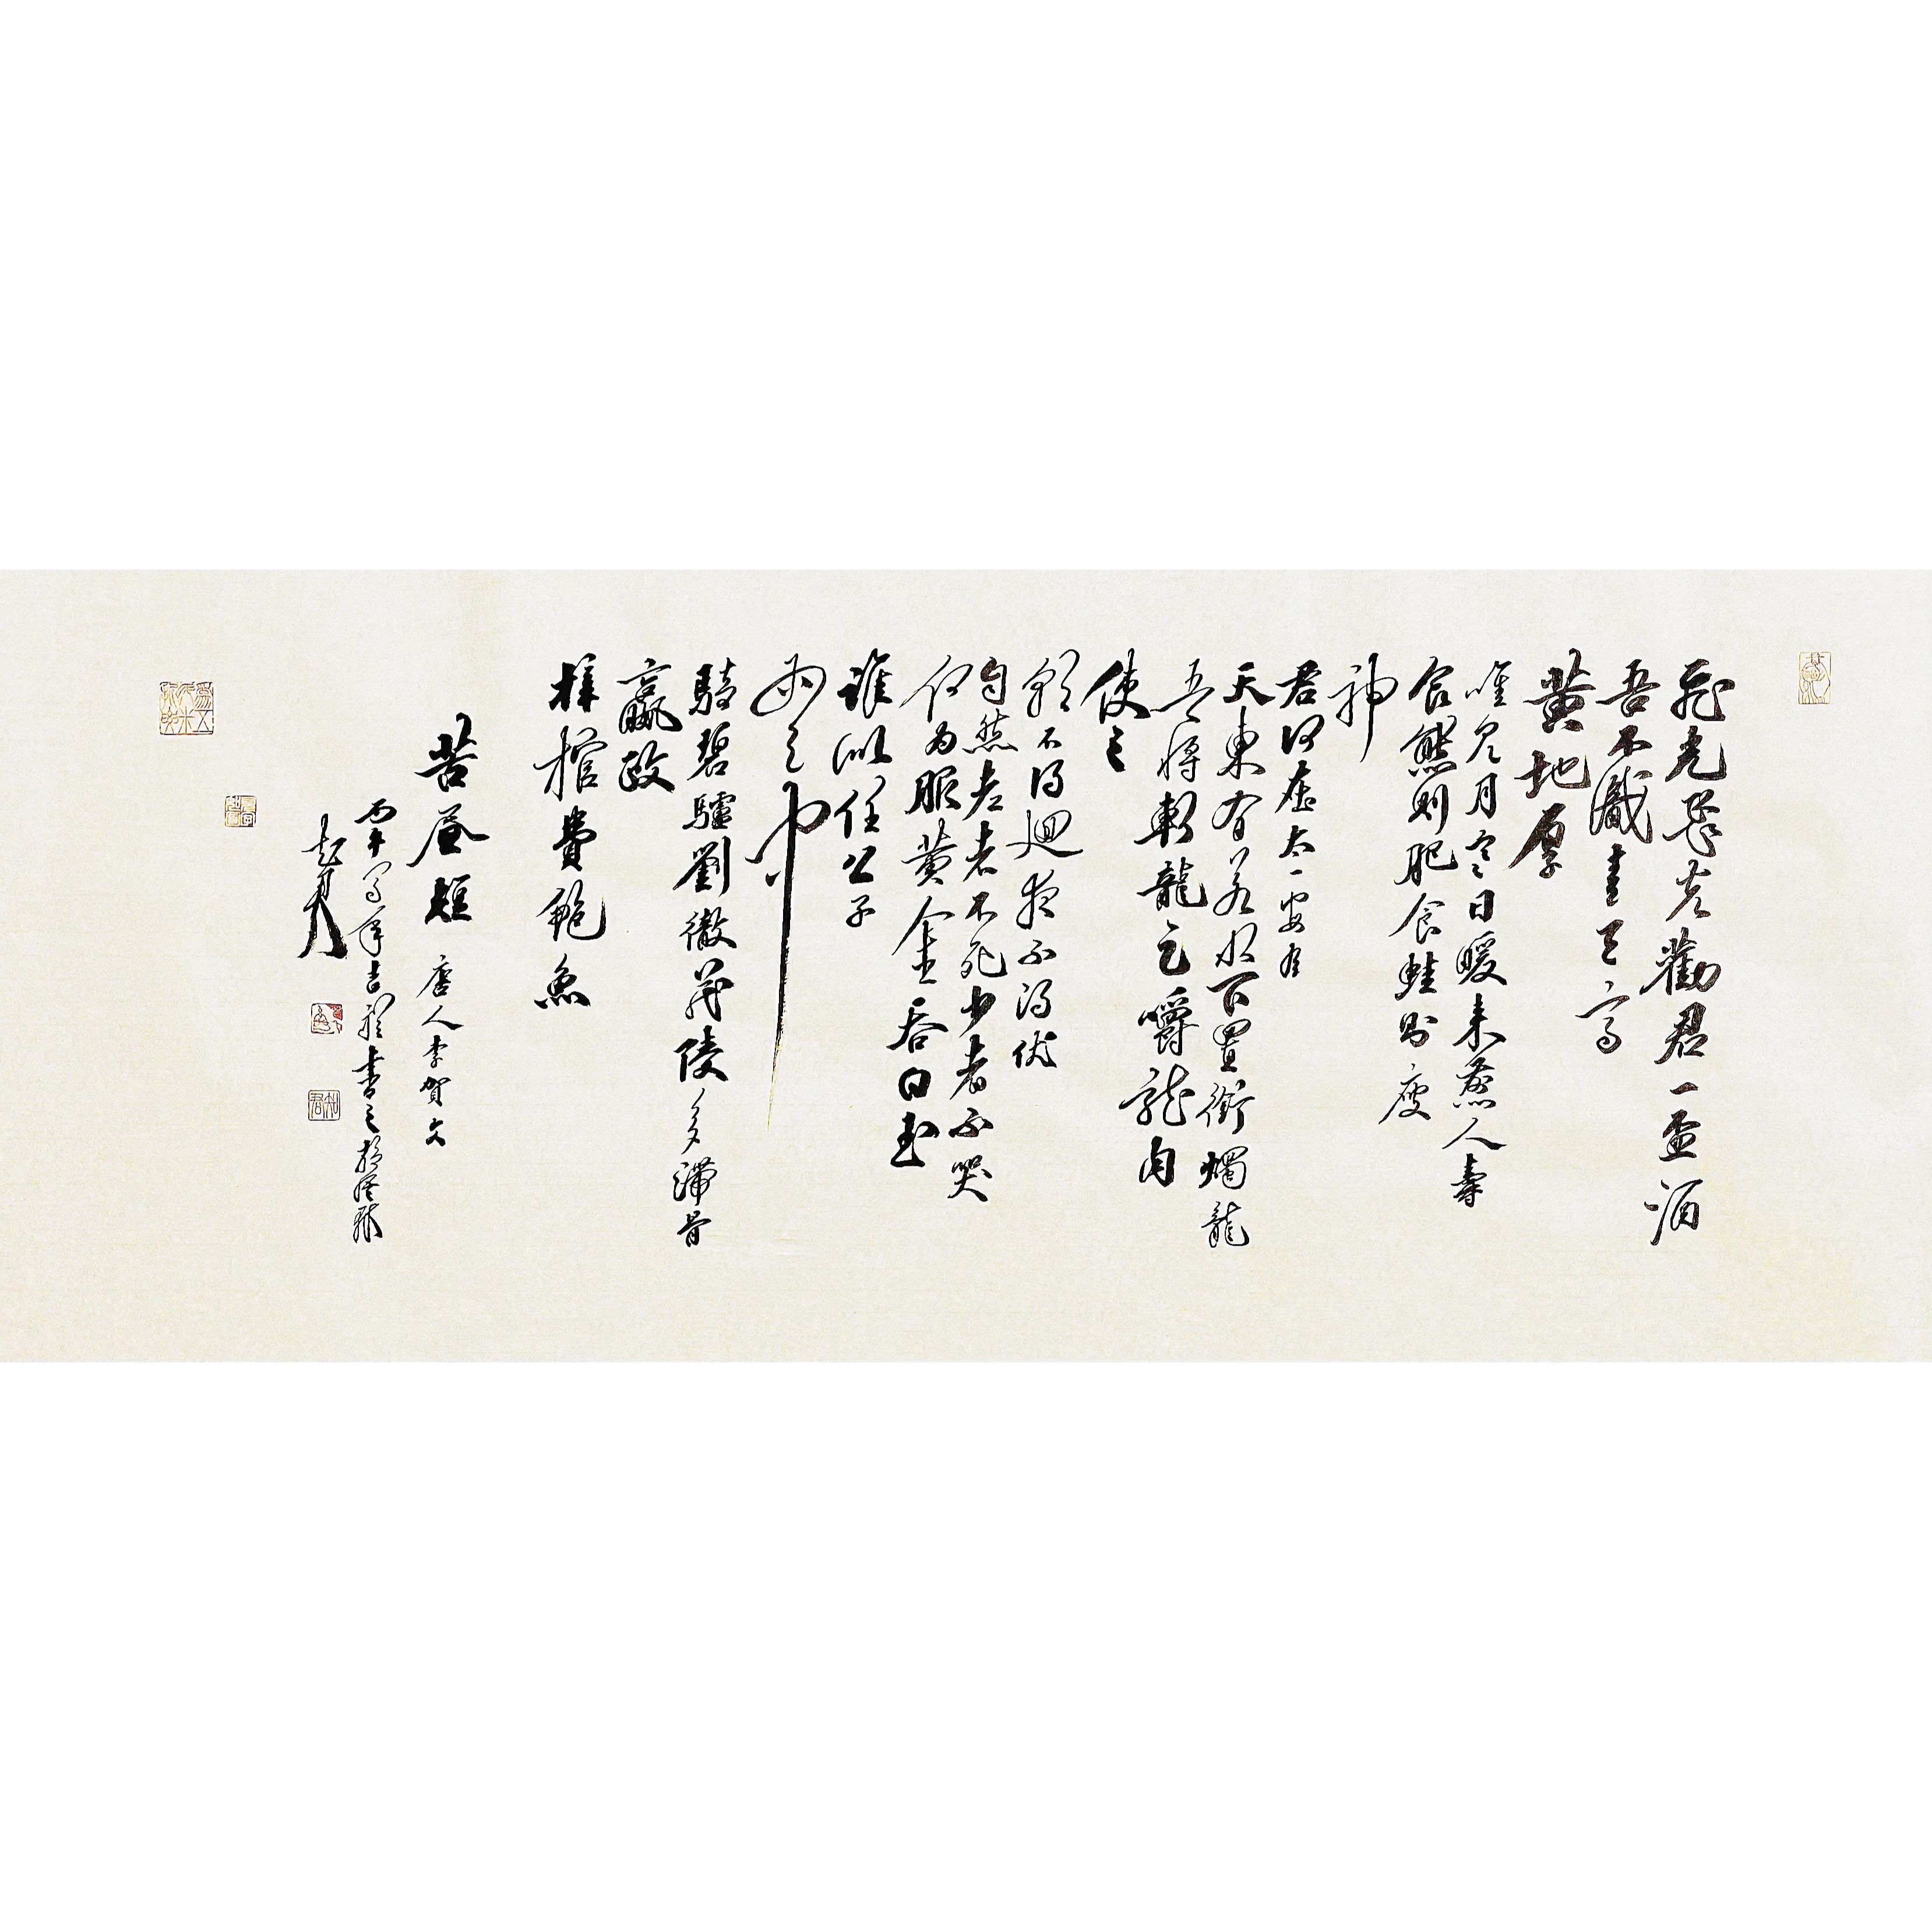 飛光飛光勸君一盃酒
吾不識青天高
黃地厚
唯見月寒日暖来煎人壽
食熊則肥食蛙則瘦
神
君何在太一安有
天東有若木下置銜燭龍
吾將斬龍足嚼龍肉
使之
朝不得迴夜不得伏
自然老者不死少者不哭
何為服黃金吞白玉
誰似任公子
雲中
騎碧驢劉徹茂陵多滯骨
嬴政
梓棺費鮑魚
苦晝短 唐人李賀文
丙午
書之